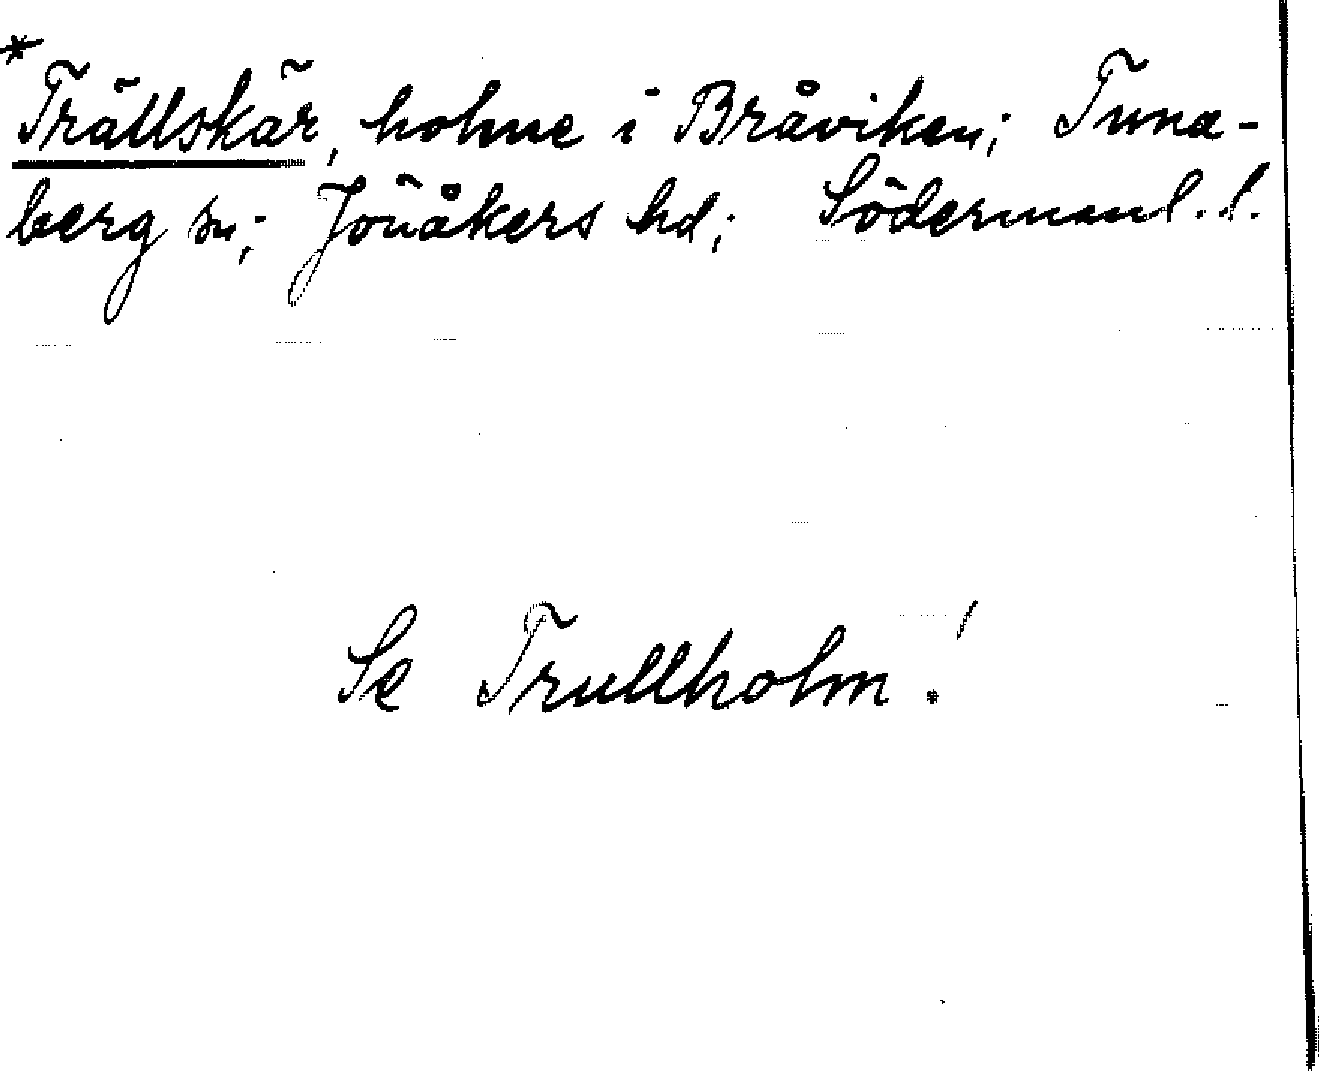 * Trällskär, holme i Bråviken; Tuna-
berg sn; Jönåkers hd; Södermanl. l.
Se Trullholm!